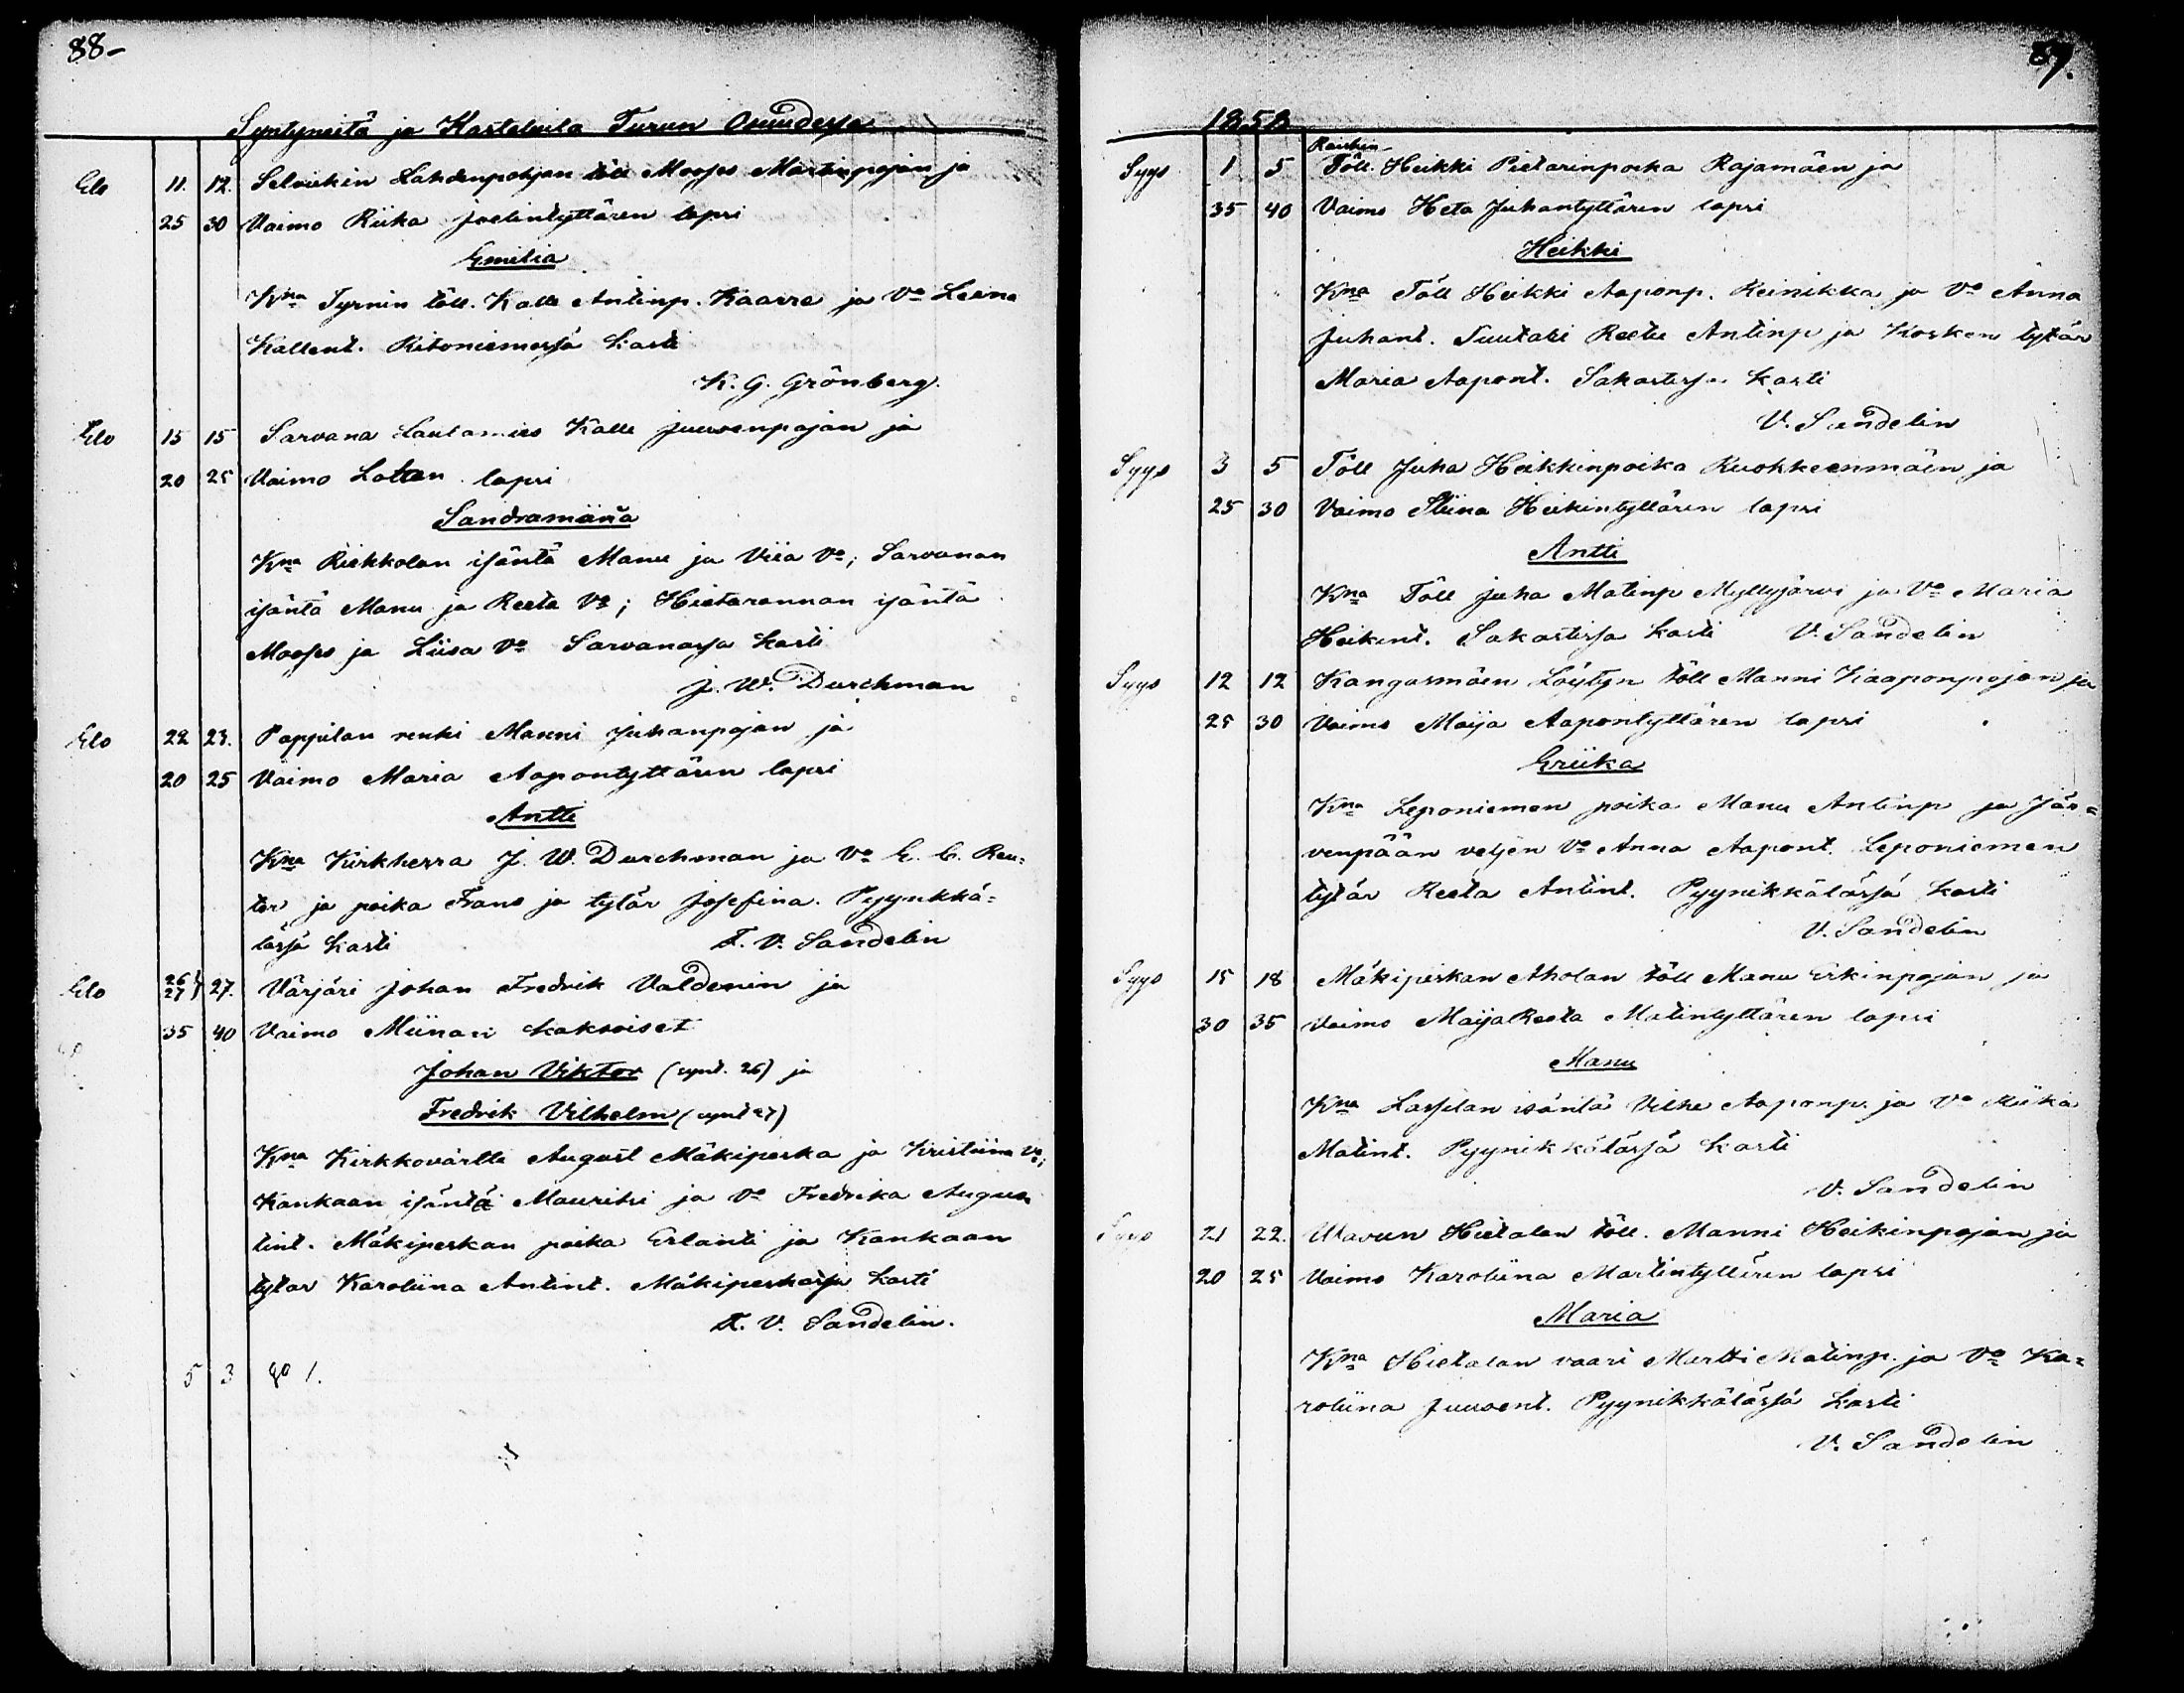 88-
Syntyneitä ja Kastetuita Turun Osuudessa
Elo 11. 12. Selvukin Lahdenpohjan töll Mooses Martinpojan ja
25 30 Vaimo Riika Joelintyttären lapsi
Emilia
Kna Tyrnin töll. Kalle Antinp. Kaarre ja Vo Leena
Kallent. Ritoniemessä kasti
K. G. Grönberg.
Elo 15 15 Sarvana Lautamies Kalle Juusenpojan ja
20 25 Vaimo Lottan lapsi
Sandramaria
Kna Riekkolan isäntä Manu ja Viia Vo; Sarvanan
isäntä Manu ja Reeta Vo; Hietarannan isäntä
Mooses ja Liisa Vo Sarvanassa kasti
J. W. Durchman
Elo 22 23. Pappilan renki Manni Juhanpojan ja
20 25 Vaimo Maria Aapontyttären lapsi
Antti
Kna Kirkherra J. W. Durchman ja Vo E. C. Reu=
ter ja poika Frans ja tytär Josefina. Pyynikkä=
lässä kasti F. V. Sandelin
Elo 26 27 } 27. Värjäri Johan Fredrik Valdenin ja
35 40 Vaimo Miinan kaksoiset
Johan Viktor (synt. 26) ja
Fredrik Vilhelm (synt 27)
Kna Kirkkovärtti August Mäkiperka ja Kristiina Vo;
Kankaan isäntä Mauritsi ja Vo Fredrika Augus
tint. Mäkiperkan poika Erlanti ja Kankaan
tytär Karoliina Antint. Mäkiperkassa kasti
F. V. Sandelin.
5 3 1.
87.
1858
Raiskin
Syys 1 5 Töll. Heikki Pietarinpoika Rajamäen ja
35 40 Vaimo Heta Juhantyttären lapsi
Heikki
Kna Töll Heikki Aaponp. Reinikka ja Vo Anna
Juhant. Suutari Reetu Antinp ja Kosken tytär
Maria Aapont. Sakastissa kasti
V. Sandelin
Syys 3 5 Töll Juha Heikkinpoika Ruokkeenmäen ja
25 30 Vaimo Stiina Heikintyttären lapsi
Antti
Kna Töll Juha Matinp Myllyjärvi ja Vo Maria
Heikint. Sakastissa kasti V. Sandelin
Syys 12 12 Kangasmäen Löytyn töll Manni Kaaponpojan ja
25 30 Vaimo Maija Aapontyttären lapsi
Eriika
Kna Leponiemen poika Manu Antinp ja Jär=
venpään veljen Vo Anna Aapont. Leponiemen
tytär Reeta Antint. Pyynikkälässä kasti
V. Sandelin
Syys 15 18 Mäkiperkan Aholan töll Manu Erkinpojan ja
30 35 Vaimo MaijaReeta Matintyttären lapsi
Manu
Kna Lassilan isäntä Vilhe Aaponp. ja Vo Miika
Matint. Pyynikkälässä kasti
V. Sandelin
Syys 21 22. Uvavun Hietalan töll. Manni Heikinpojan ja
20 25 Vaimo Karoliina Martintyttären lapsi
Maria
Kna Hietalan vaari Martti Matinp. ja Vo Ka=
roliina Juusent. Pyynikkälässä kasti
V. Sandelin